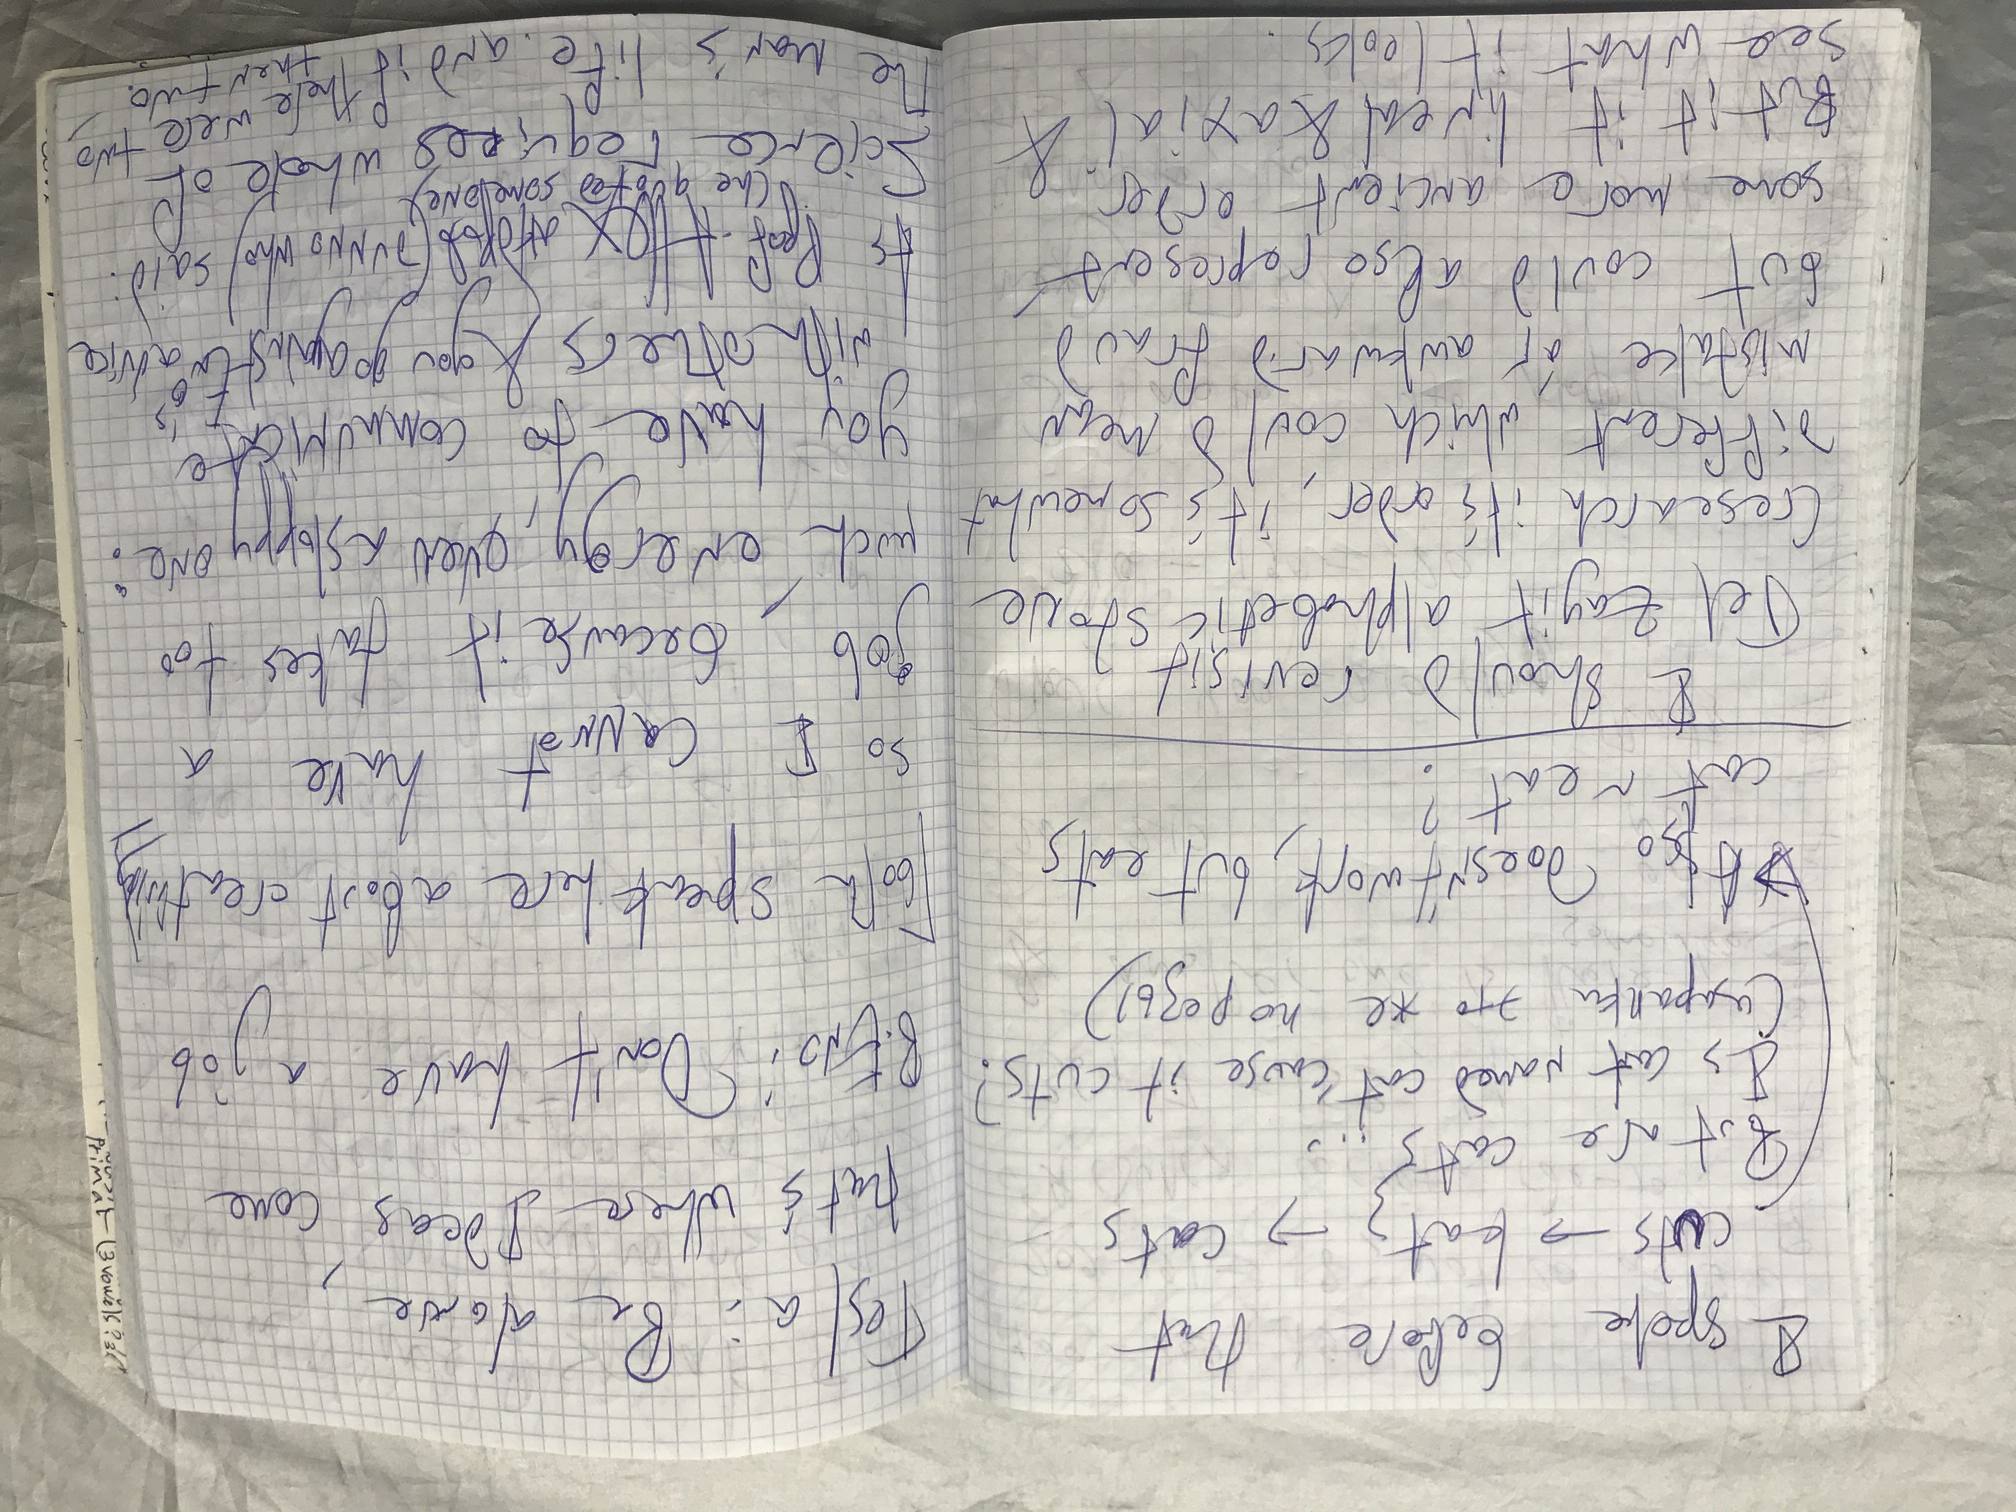 I spoke before that
cuts → kats → cats
But are cats...
Is cat named cat cause it cuts?
(царапки это же порезы)
Also doesn't work, but eats
cat meat?
I should revisit
Tel Zayit alphabetic stone
(research it's order, it's somewhat
different which could mean
mistake or awkward fraud
but could also represent
some more ancient order
But it it lineal & axial &
see what it looks.
Tesla: Be alone,
that's where Ideas come
Don't have a job
Both speak here about creativity
so I cannot have a
job, because it takes too
much energy, even a sloppy one:
you have to communicate
with others & you go against
advice
As Prof. (dunno who said:
(he quoted someone)
Science requires whole of
the man's life. and if there were two,
then two.